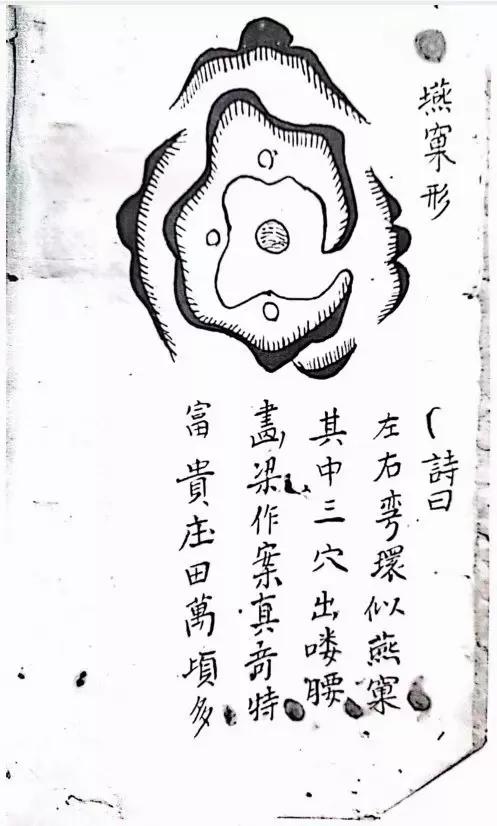 燕窠形
詩曰
左右弯環似燕窠
其中三穴出喽腰
畵梁作案真竒特
富貴庄田萬頃多